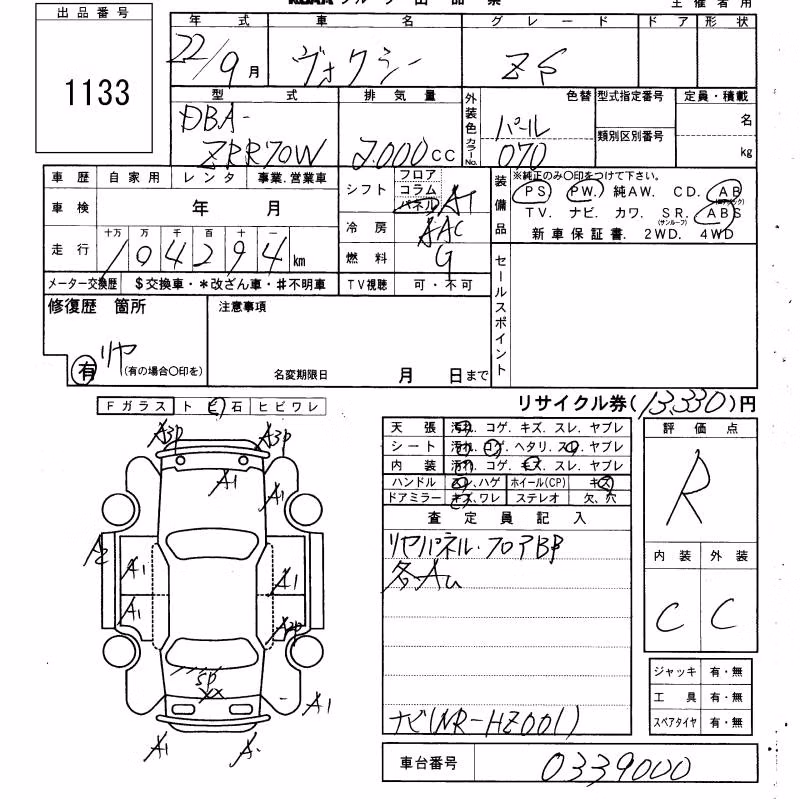 出品番号
1133
主催者用
年式 車名 グレード ドア 形状
22/9月 ヴォクシー ZS
型式 排気量 外装色 カラーNo. 色替 型式指定番号 定員・積載
DBA-
ZRR70W 2.000cc パール 070 類別区別番号 名 kg
車歴 自家用 レンタ 事業.営業車
シフト フロア コラム パネル AT
装備品 ※純正のみ〇印をつけて下さい。
PS PW. 純AW. CD. AB (エアバック)
TV. ナビ. カワ. SR. (サンルーフ) ABS
新車保証書. 2WD. 4WD
車検 年 月
冷房 AAC
走行 十万 万 千 百 十 一
104294 km
燃料 G
メーター交換歴 $交換車・*改ざん車・♯不明車 TV視聴 可・不可
セールスポイント
修復歴 箇所 注意事項
有 リヤ (有の場合〇印を)
名変期限日 月 日まで
Fガラス ト ビ 石 ヒビワレ
リサイクル券(13,330)円
天張 汚れ. コゲ. キズ. スレ. ヤブレ
シート 汚れ. コゲ. ヘタリ. スレ. ヤブレ
内装 汚れ. コゲ. キズ. スレ. ヤブレ
ハンドル スレ. ハゲ ホイール(CP) キズ
ドアミラー キズ. ワレ ステレオ 欠. 穴
評価点
R
内装 外装
C C
査定員記入
リヤパネル・フロアBP
各AU
ナビ(NR-HZ001)
A3P A3P
A1 A1
A2 A1 A1
A1 A2P
SP
XX
A1
A1
ジャッキ 有・無
工具 有・無
スペアタイヤ 有・無
車台番号 0339000